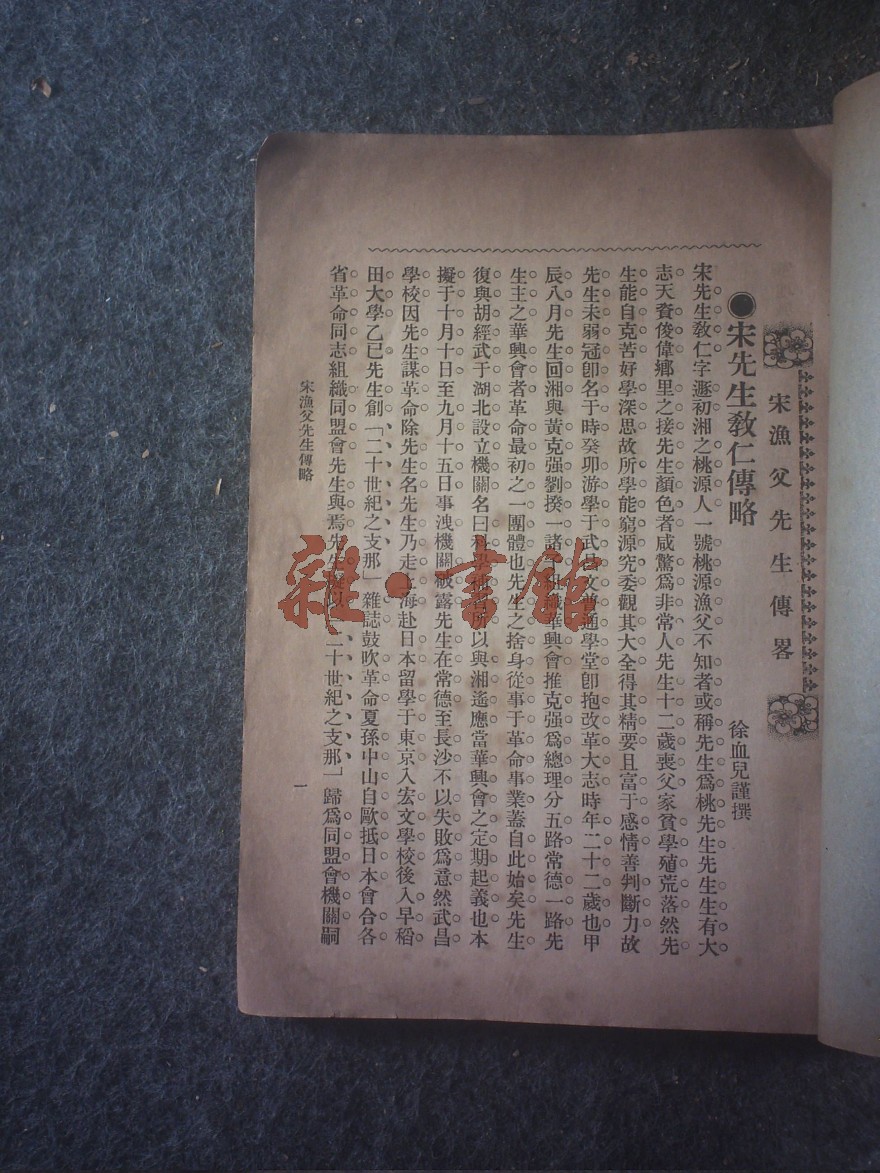 宋漁父先生傳畧
●宋先生敎仁傳略
徐血兒謹撰
宋先生敎仁字遯初湘之桃源人一號桃源漁父不知者或稱先生爲桃先生先生生有大
志天資俊偉鄉里之接先生顏色者咸驚爲非常人先生十二歲喪父家貧學殖荒落然先
生能自克苦好學深思故所學能窮源究委觀其大全得其精要且富于感情善判斷力故
先生未弱冠卽名于時癸卯游學于武昌文普通學堂卽抱改革大志時年二十二歲也甲
辰八月先生回湘與黃克强劉揆一諸君組織華興會推克强爲總理分五路常德一路先
生主之華興會者革命最初之一團體也先生之捨身從事于革命事業蓋自此始矣先生
復與胡經武于湖北設立機關名曰科學補習所以與湘遙應當華興會之定期起義也本
擬于十月十日至九月十五日事洩機關破露先生在常德至長沙不以失敗爲意然武昌
學校因先生謀革命除先生名先生乃走上海赴日本留學于東京入宏文學校後入早稻
田大學乙巳先生創「二十世紀之支那」雜誌鼓吹革命夏孫中山自歐抵日本會合各
省革命同志組織同盟會先生與焉先生以「二十世紀之支那」歸爲同盟會機關嗣
宋漁父先生傳略
一
雜·書館